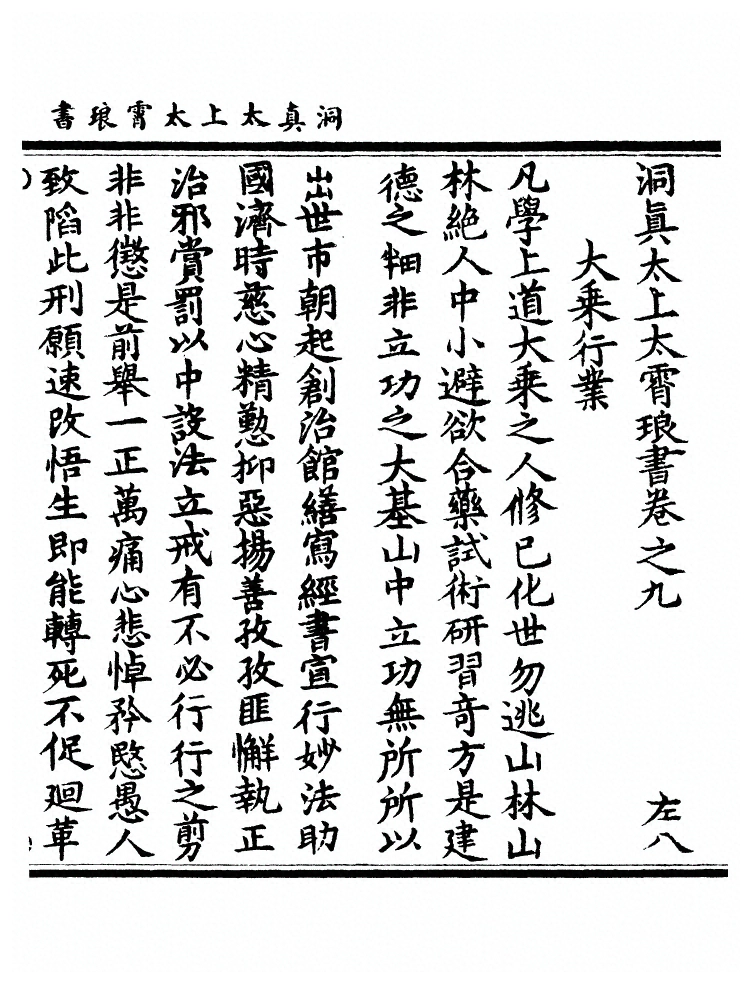 洞真太上太霄琅書
洞真太上太霄琅書卷之九　左八
大乘行業
凡學上道大乘之人修已化世勿逃山林山
林絶人中小避欲合藥試術研習竒方是建
德之細非立功之大基山中立功無所所以
出世市朝起創治館繕寫經書宣行妙法助
國濟時慈心精懃抑惡揚善孜孜匪懈執正
治邪賞罰以中設法立戒有不必行行之剪
非非懲是前舉一正萬痛心悲悼矜愍愚人
致陷此刑願速改悟生即能轉死不促迴革